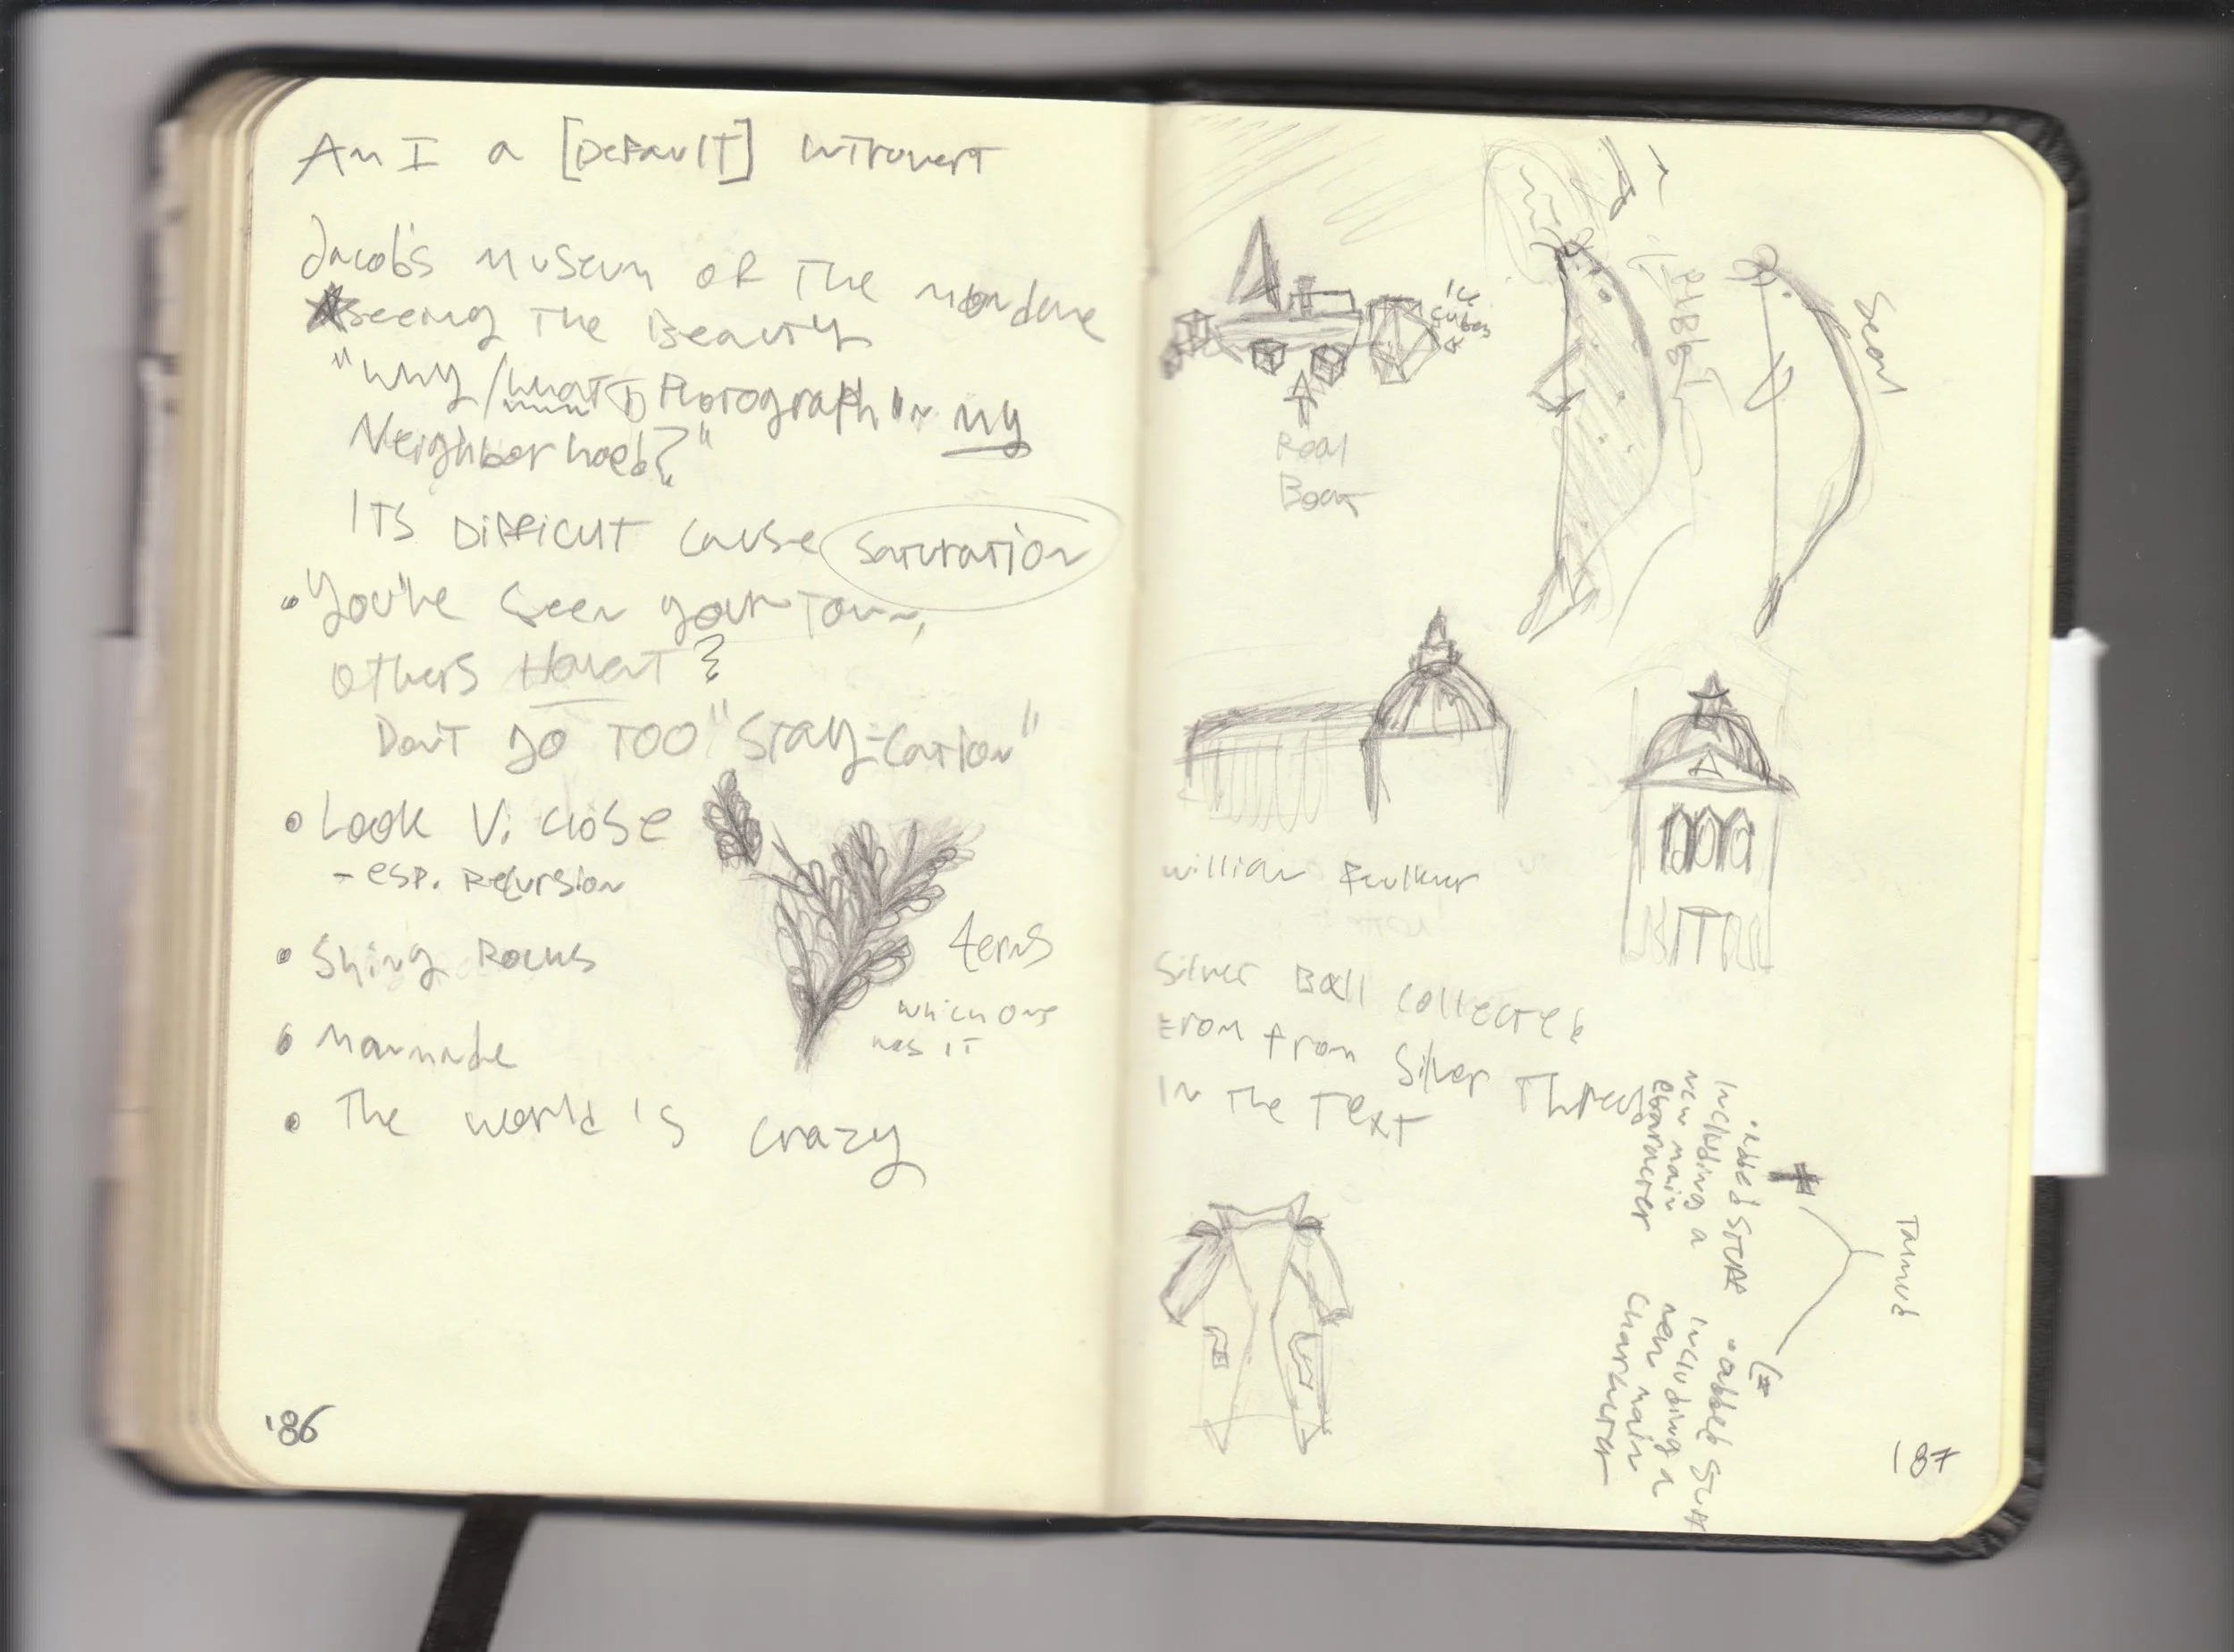 Am I a [Default] introvert
Jacob's museum of the mondane
seeing the Beauty
"why/what I Photograph in my
Neighborhood?"
ITS DIFFICULT cause saturation
• You've seen your town,
others Havent?
Don't go TOO "Stay-cation"
• Look V. close
- esp. Recursion
• Shing Rocks
• manmade
• The world is crazy
ferns
which one
has IT
186
Ice
cubes
Real
Boat
Seal
William Faulkner
Silver Ball collected
From from Silver Thread
In the Text
Talmud
• added stuff
including a
new main
character
• added stuff
including a
new main
character
187